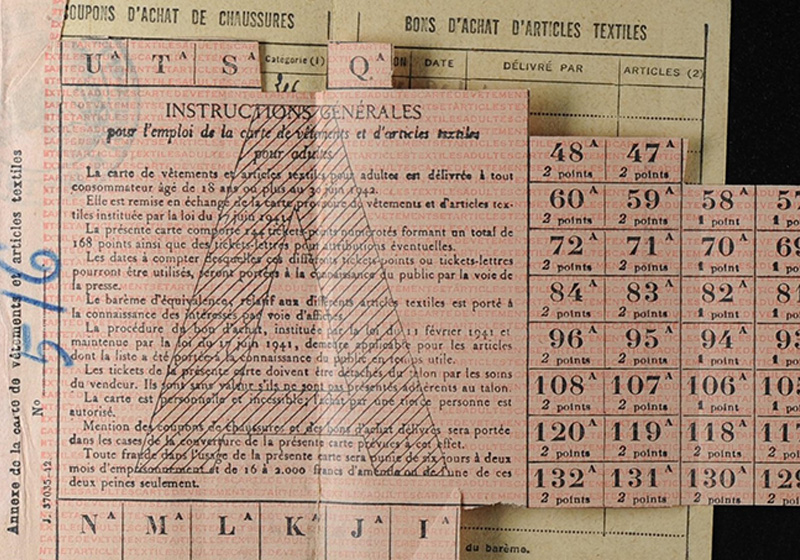 COUPONS D'ACHAT DE CHAUSSURES
BONS D'ACHAT D'ARTICLES TEXTILES
Catégorie (1)
DATE
DÉLIVRÉ PAR
ARTICLES (2)
Uᴬ Tᴬ Sᴬ Qᴬ
INSTRUCTIONS GÉNÉRALES
pour l'emploi de la carte de vêtements et d'articles textiles
pour adultes
La carte de vêtements et articles textiles pour adultes est délivrée à tout
consommateur âgé de 18 ans ou plus au 30 juin 1942.
Elle est remise en échange de la carte provisoire de vêtements et d'articles tex-
tiles instituée par la loi du 17 juin 1941.
La présente carte comporte 144 tickets-points numérotés formant un total de
168 points ainsi que des tickets-lettres pour attributions éventuelles.
Les dates à compter desquelles ces différents tickets-points ou tickets-lettres
pourront être utilisés, seront portées à la connaissance du public par la voie de
la presse.
Le barème d'équivalence, relatif aux différents articles textiles est porté à
la connaissance des intéressés par voie d'affiches.
La procédure du bon d'achat, instituée par la loi du 11 février 1941 et
maintenue par la loi du 17 juin 1941, demeure applicable pour les articles
dont la liste a été portée à la connaissance du public en temps utile.
Les tickets de la présente carte doivent être détachés du talon par les soins
du vendeur. Ils sont sans valeur s'ils ne sont pas présentés adhérents au talon.
La carte est personnelle et incessible; l'achat par une tierce personne est
autorisé.
Mention des coupons de chaussures et des bons d'achat délivrés sera portée
dans les cases de la couverture de la présente carte prévues à cet effet.
Toute fraude dans l'usage de la présente carte sera punie de six jours à deux
mois d'emprisonnement et de 16 à 2.000 francs d'amende ou de l'une de ces
deux peines seulement.
Nᴬ Mᴬ Lᴬ Kᴬ Jᴬ Iᴬ
48ᴬ 47ᴬ
2 points 2 points
60ᴬ 59ᴬ 58ᴬ 57
2 points 2 points 1 point
72ᴬ 71ᴬ 70ᴬ 69
2 points 2 points 1 point
84ᴬ 83ᴬ 82ᴬ 81
2 points 2 points 1 point
96ᴬ 95ᴬ 94ᴬ 93
2 points 2 points 1 point
108ᴬ 107ᴬ 106ᴬ 105
2 points 2 points 1 point
120ᴬ 119ᴬ 118ᴬ 117
2 points 2 points 2 points
132ᴬ 131ᴬ 130ᴬ 129
2 points 2 points 2 points
du barème.
Annexe de la carte de vêtements et articles textiles
No
J. 37035-12
5-16